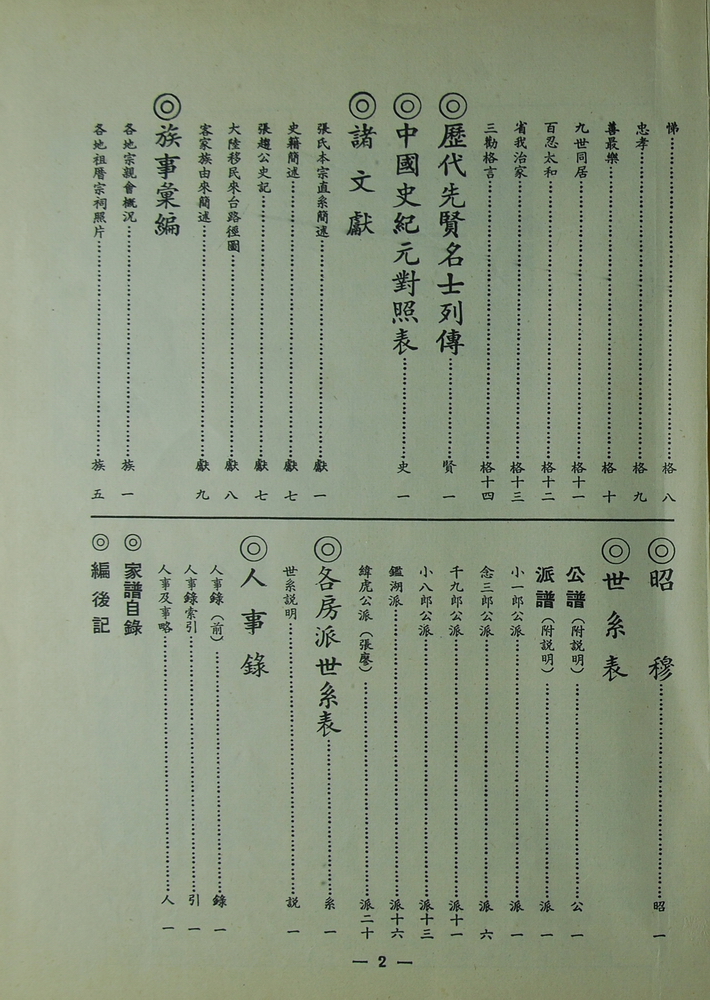 悌………格八
忠孝………格九
善最樂………格十
九世同居………格十一
百忍太和………格十二
省我治家………格十三
三勸格言………格十四
◎歷代先賢名士列傳………賢一
◎中國史紀元對照表………史一
◎諸文獻
張氏本宗直系簡述………獻一
史籍簡述………獻七
張趙公史記………獻七
大陸移民來台路徑圖………獻八
客家族由來簡述………獻九
◎族事彙編
各地宗親會概況………族一
各地祖厝宗祠照片………族五
◎昭穆………昭一
◎世系表
公譜(附說明)………公一
派譜(附說明)………派一
小一郎公派………派一
念三郎公派………派六
千九郎公派………派十一
小八郎公派………派十三
鑑湖派………派十六
緯虎公派(張廖)………派二十
◎各房派世系表………系一
世系說明………說一
◎人事錄
人事錄(前)………錄一
人事錄索引………引一
人事及事略………人一
◎家譜自錄
◎編後記
— 2 —